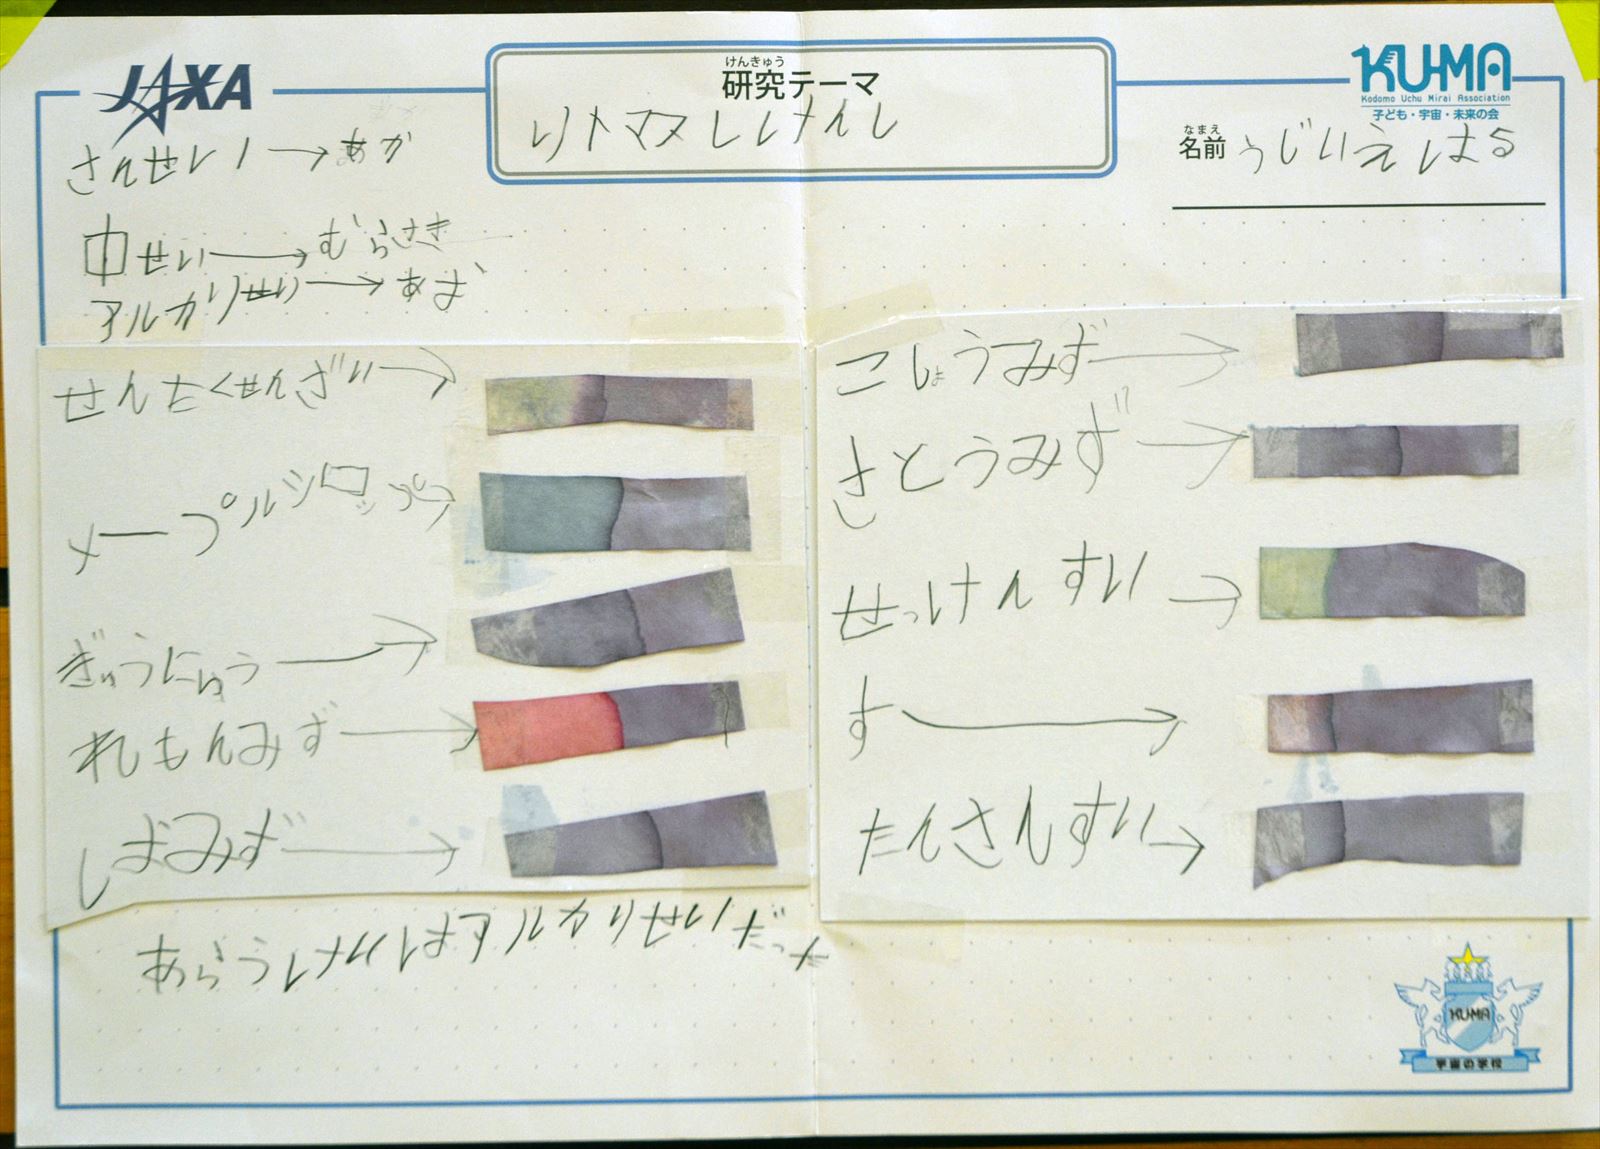 JAXA
けんきゅう
研究テーマ
リトマスししけんし
KU-MA
Kodomo Uchu Mirai Association
子ども・宇宙・未来の会
なまえ
名前 うじいえ はる
さんせい→あか
中せい→むらさき
アルカリせい→あお
せんたくせんざい→
メープルシロップ→
ぎゅうにゅう→
れもんみず→
しおみず→
こしょうみず→
さとうみず→
せっけんすい→
す→
たんさんすい→
あらうけいはアルカリせいだった
KU-MA